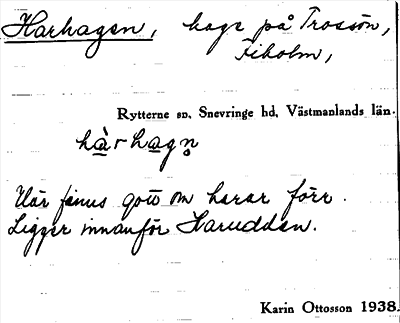 Harhagen, hage på Trossön,
Fiholm,
Rytterne sn, Snevringe hd, Västmanlands län.
hàrhagn̥
Där finns gott om harar förr.
Ligger innanför Harudden.
Karin Ottosson 1938.